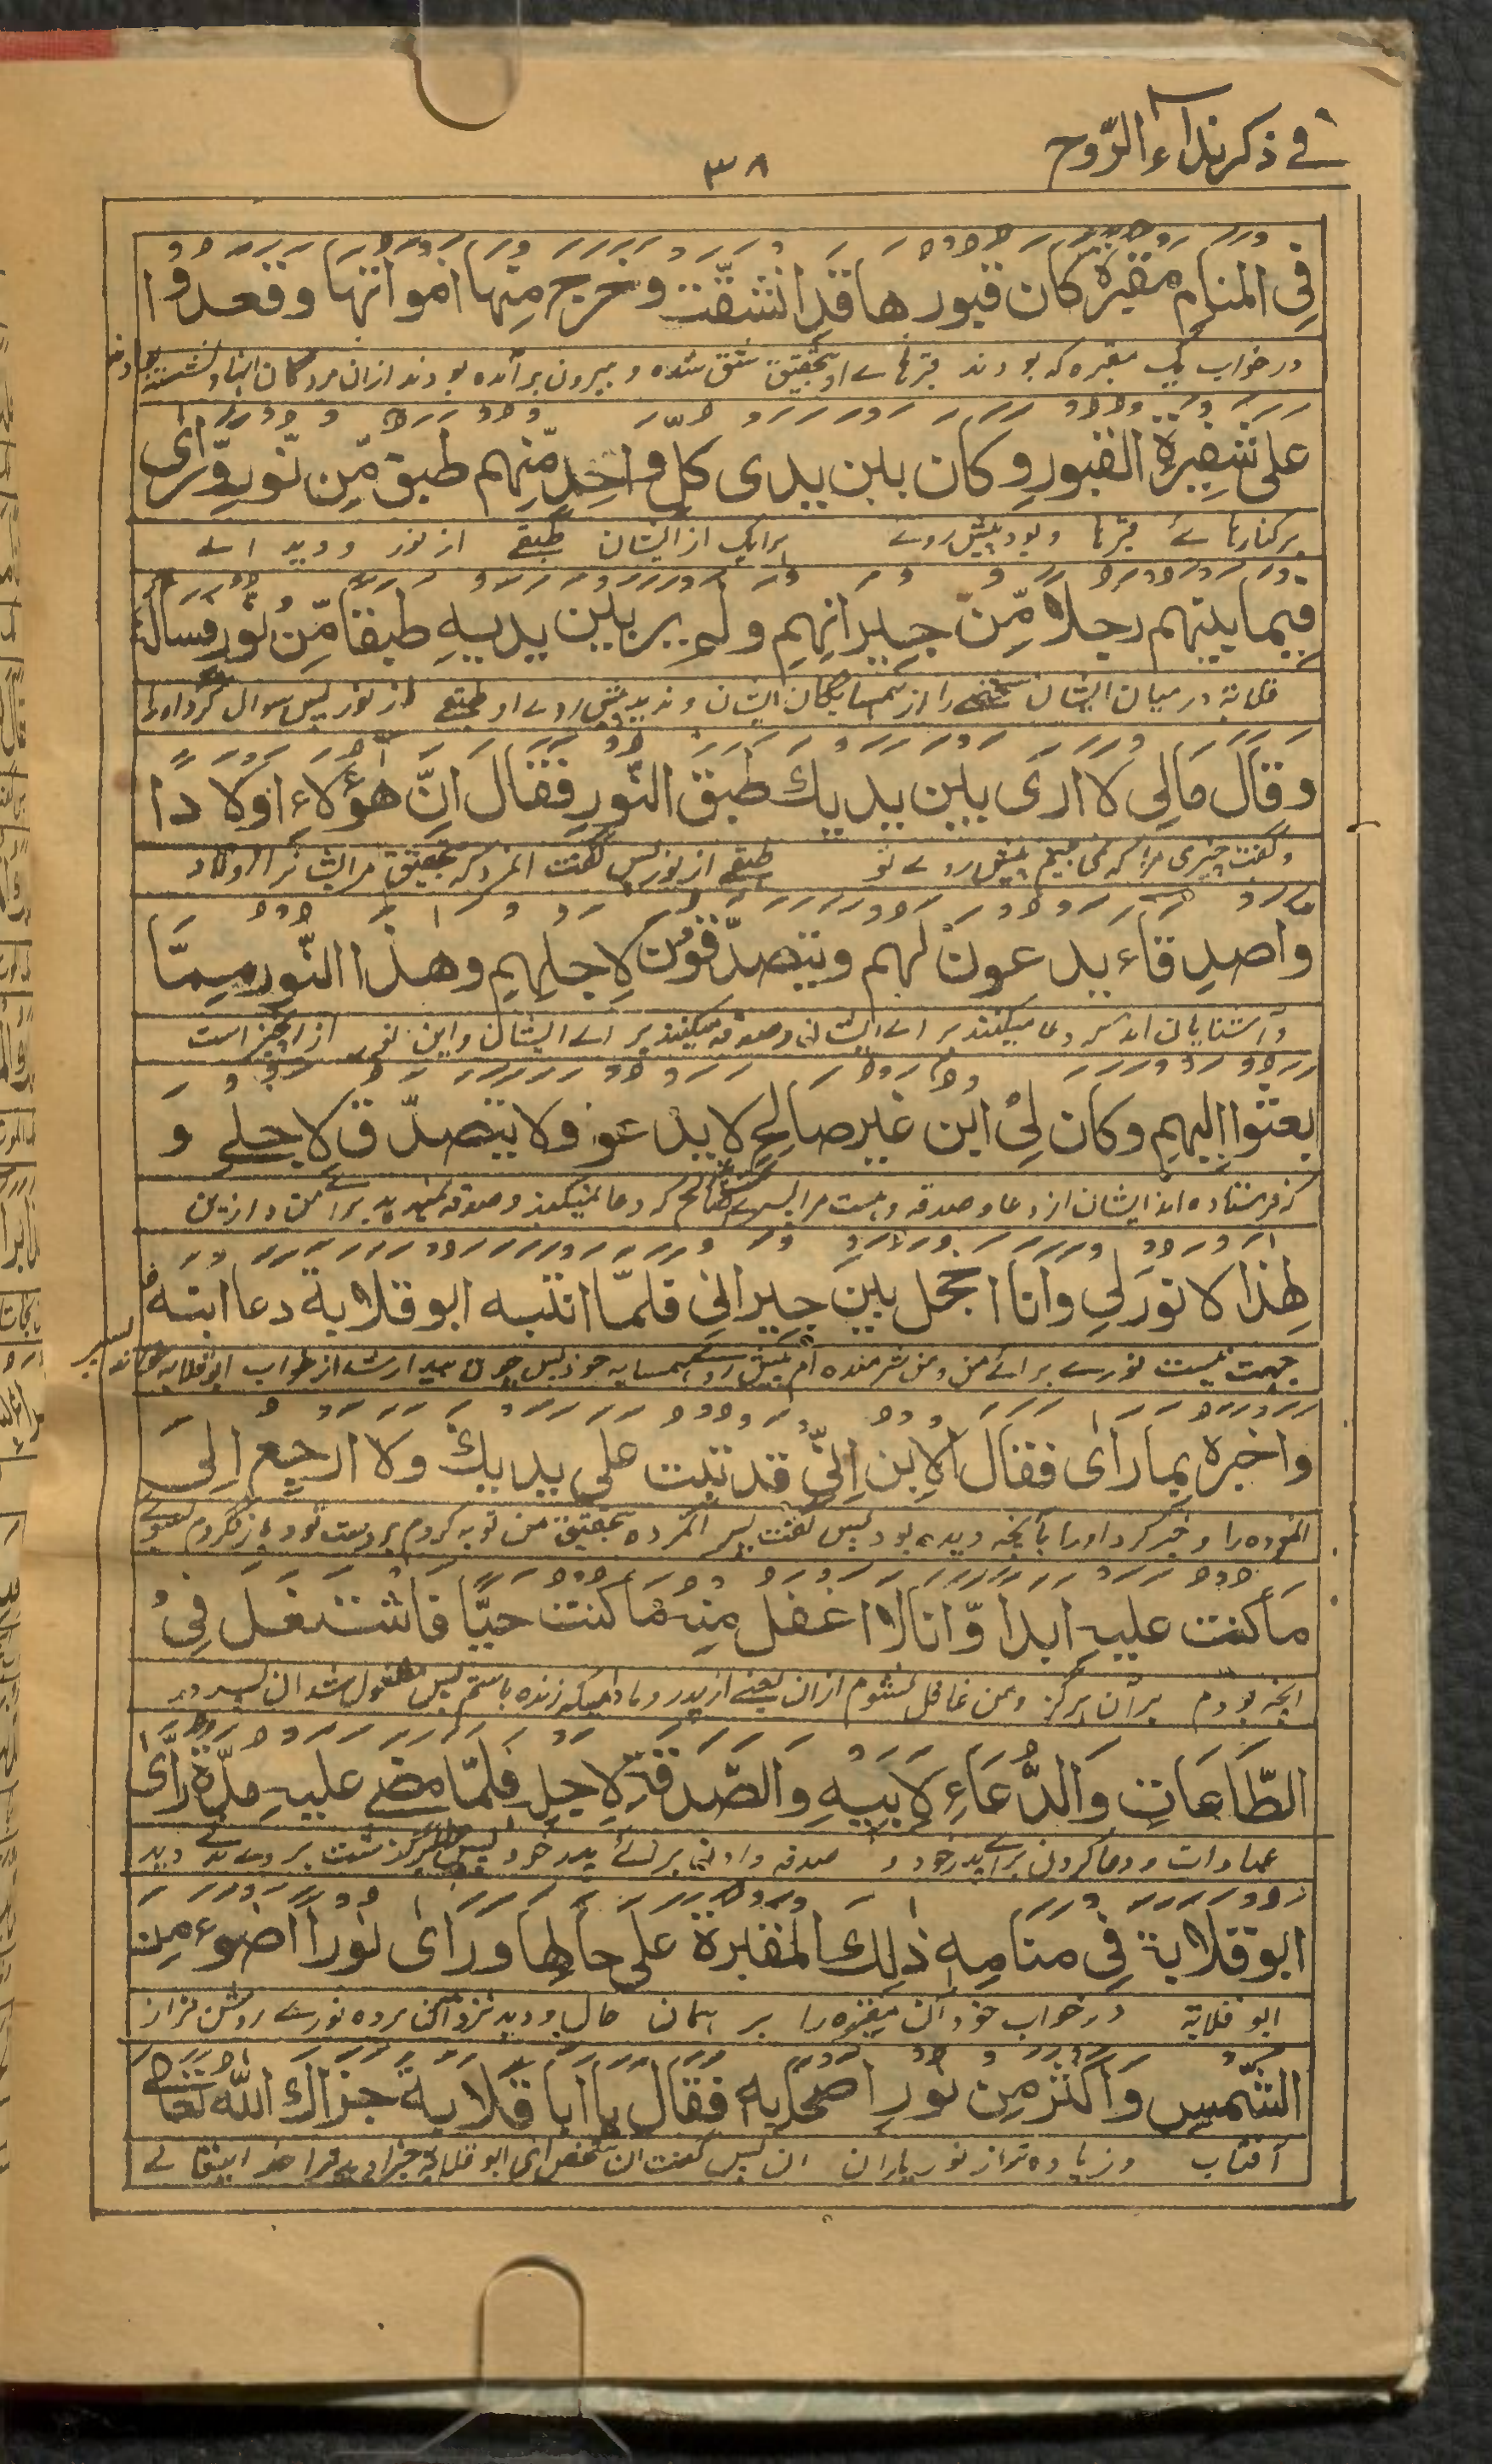 في ذكر نداء الروح
۳۸
فِي المنام مقبرة كان قبورها قد انشقّت وخرج منها امواتها وقعدوا
در خواب یک مقبره که بودند قبرهاے او بتحقیق شق شده و بیرون برآمده بودند ازان مردگان اینها و نشسته بودند
على شفيرة القبور وكان بين يدى كل واحد منهم طبق من نور ورأى
برکنارهائے قبرها و بود پیش روے هرایک از ایشان طبقے از نور و دید اے
فيما بينهم رجلا من جيرانهم ولم ير بين يديه طبقا من نور فساله
قلابة درمیان ایشان شخصے را از همسایگان ایشان و ندید پیش روے او طبقے از نور پس سوال کرد اورا
وقال مالى لا ارى بين يديك طبق النور فقال انّ هؤلاء اولادا
و گفت چیزی مرا که نمی بینم پیش روے تو طبقے از نور پس گفت المرد که بتحقیق مر ایشانرا اولاد
واصدقاء يدعون لهم ويتصدّقون لاجلهم وهذا النّور ممّا
و آشنایان اند که دعا میکنند براے ایشان و صدقه میکنند براے ایشان و این نور از انچیز است
بعثوا اليهم وكان لى ابن غير صالح لا يدعو ولا يتصدّق لاجلى و
که فرستاده اند ایشان از دعا و صدقه و هست مرا پسرے غیر صالح که دعا نمیکند و صدقه نمیدهد براے من و ازین
لهذا لا نور لى وانا اخجل بين جيرانى فلمّا انتبه ابو قلابة دعا ابنه
جهت نیست نورے برائے من و من شرمنده ام پیش روے همسایه خود پس چون بیدار شد از خواب ابو قلابه خواند پسر
واخبره بما راى فقال الابن انّى قد تبت على يديك ولا ارجع الى
المرده را و خبر کرد اورا بآنچه دیده بود پس گفت پسر المرده بتحقیق من توبه کردم بر دست تو و بازنگردم بسوے
ما كنت عليه ابدا وّانا لا اغفل منه ما كنت حيّا فاشتغل فى
انچه بودم بر آن هرگز و من غافل نشوم ازان یعنے از پدر و مادامیکه زنده باشم پس مشغول شد ان پسر در
الطّاعات والدّعاء لابيه والصّدقة لاجله فلمّا مضى عليه مدّة رأى
عبادات و دعا کردن براے پدر خود و صدقه دادن برائے پدر خود پس هرگاه گذشت بر وے مدتے دید
ابو قلابة فى منامه ذلك المقبرة على حالها ورأى نورا اضوء من
ابو قلابة در خواب خود آن مقبره را بر همان حال و دید نزد آن مرده نورے روشن تر از
الشّمس واكثر من نور اصحابه فقال يا ابا قلابة جزاك الله تعالى
آفتاب و زیاده تر از نور یاران ان پس گفت ان شخص ای ابو قلابه جزا دهد ترا خدایتعالے